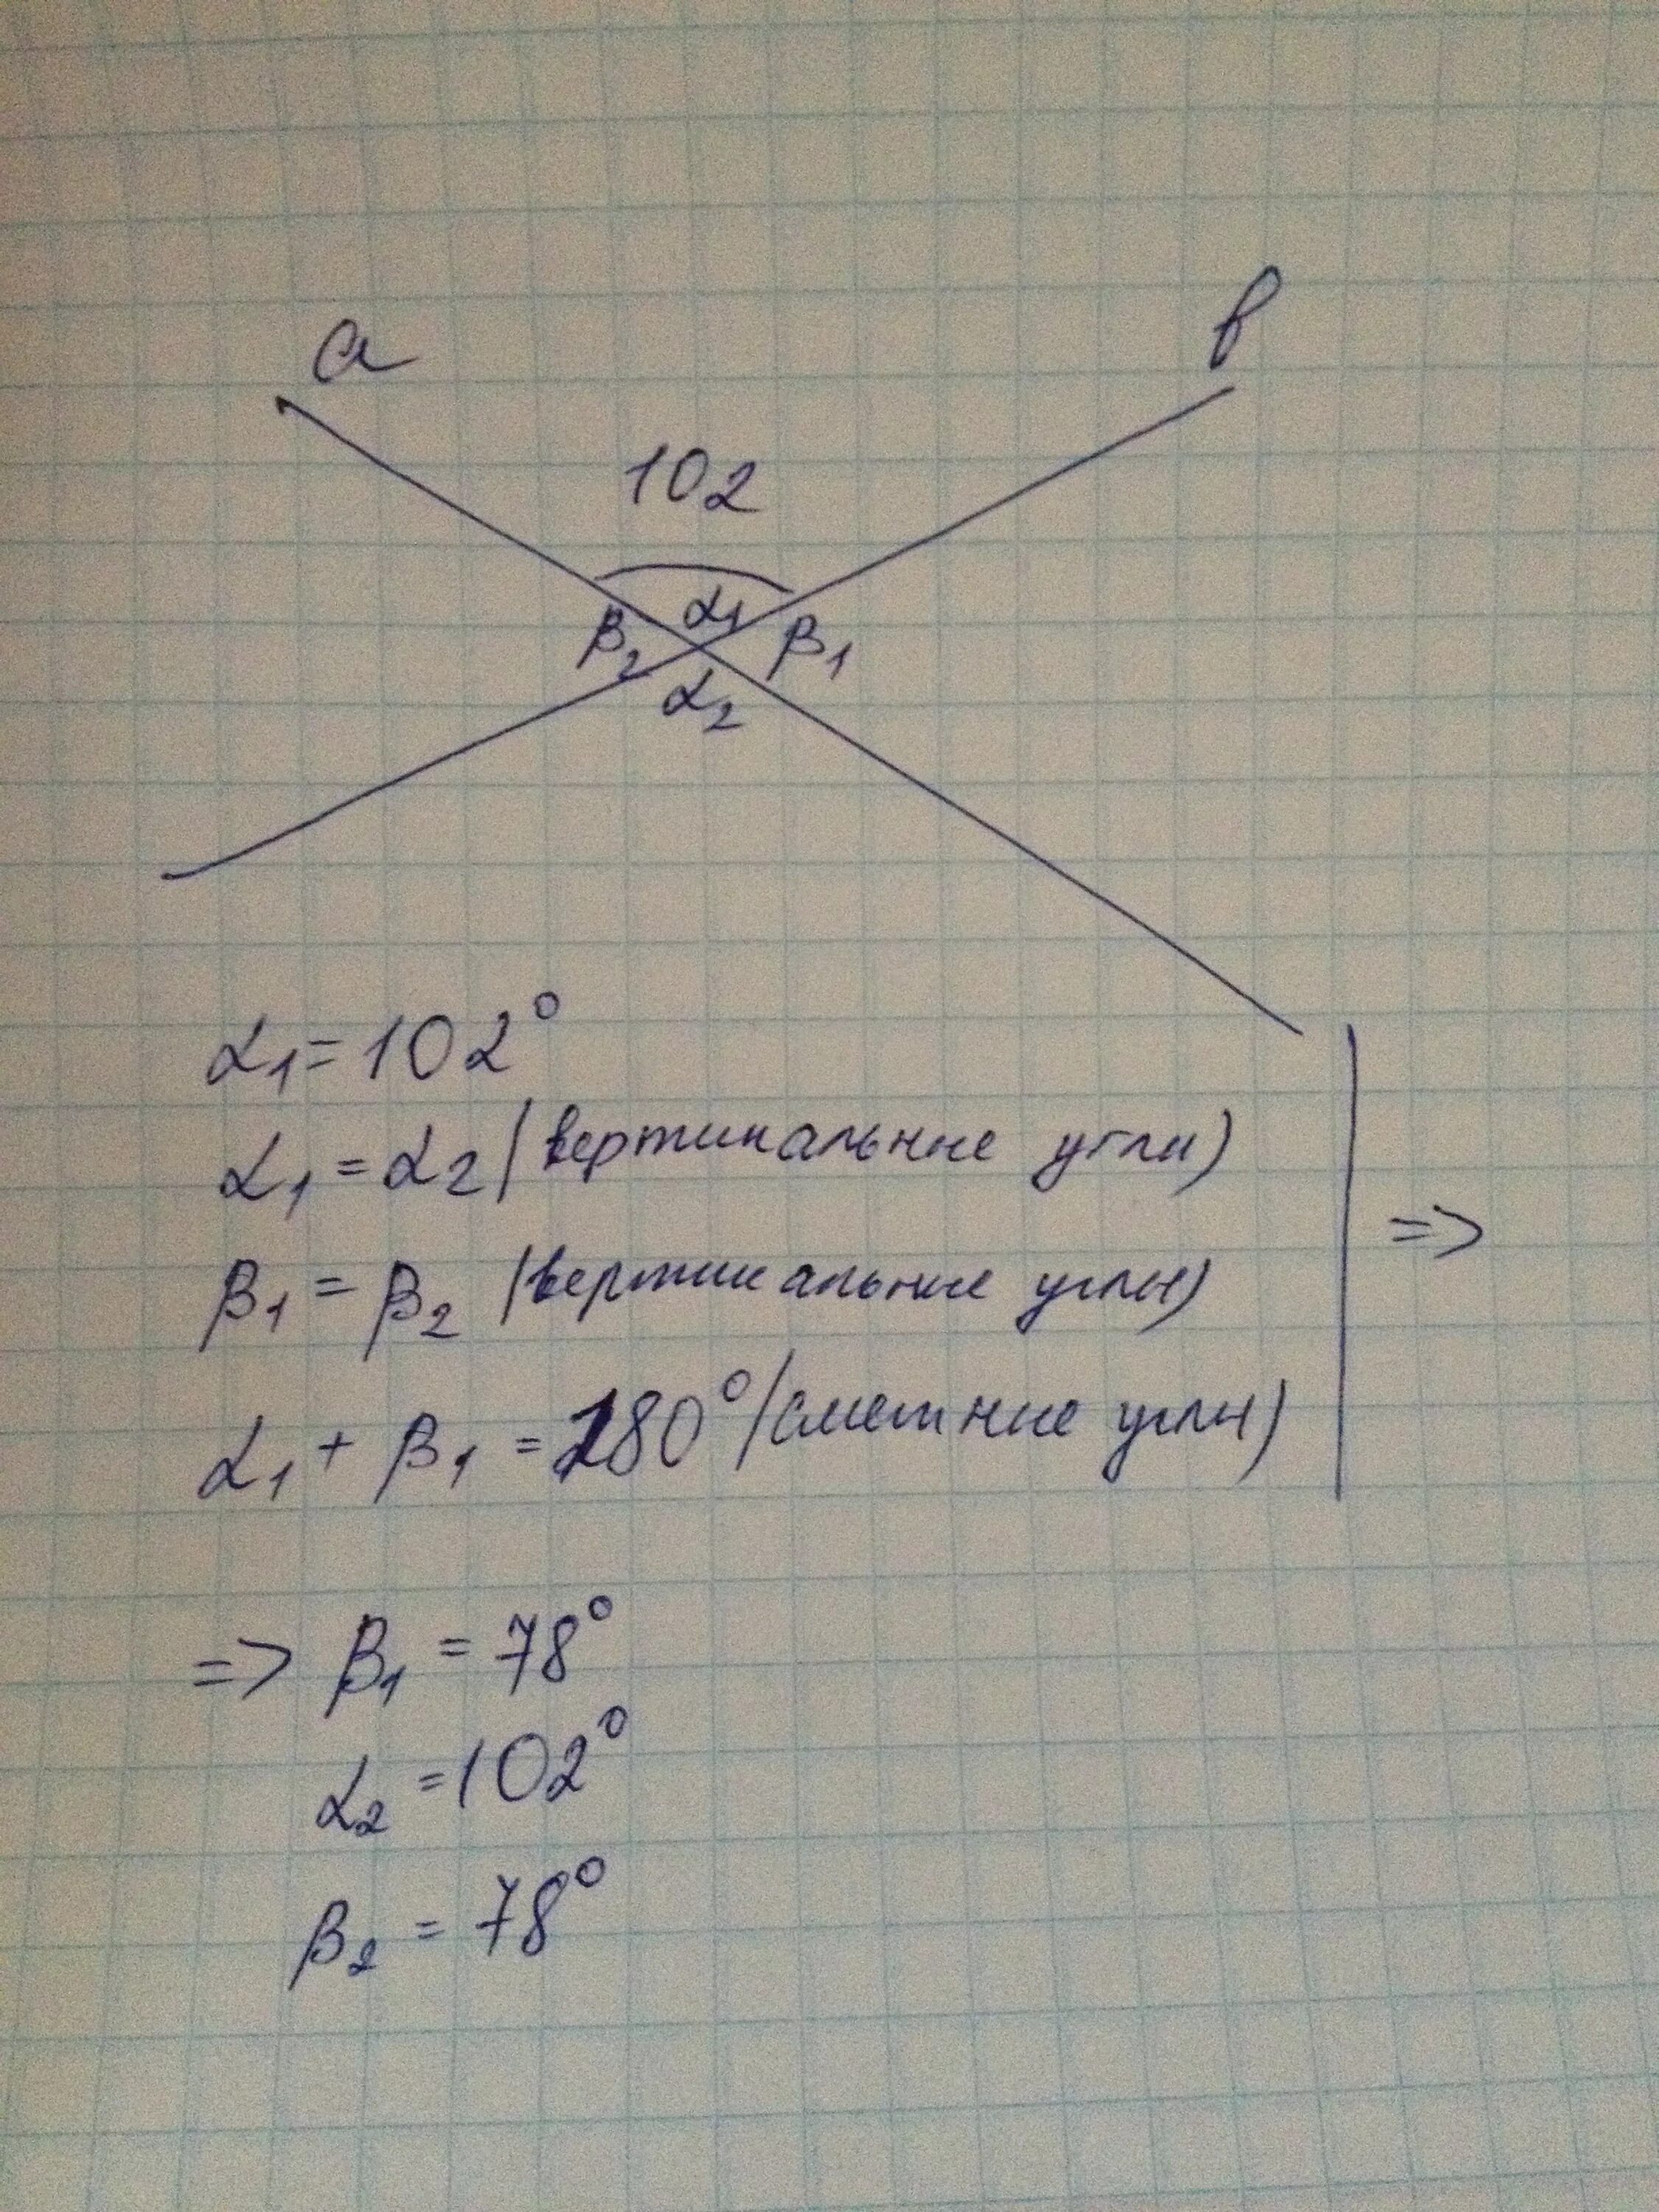 a
b
102
β₂ α₁ β₁
α₂
α₁=102°
α₁=α₂ (вертикальные углы)
β₁ = β₂ (вертикальные углы)
=>
α₁ + β₁ = 180° (смежные углы)
=> β₁ = 78°
α₂ =102°
β₂ = 78°